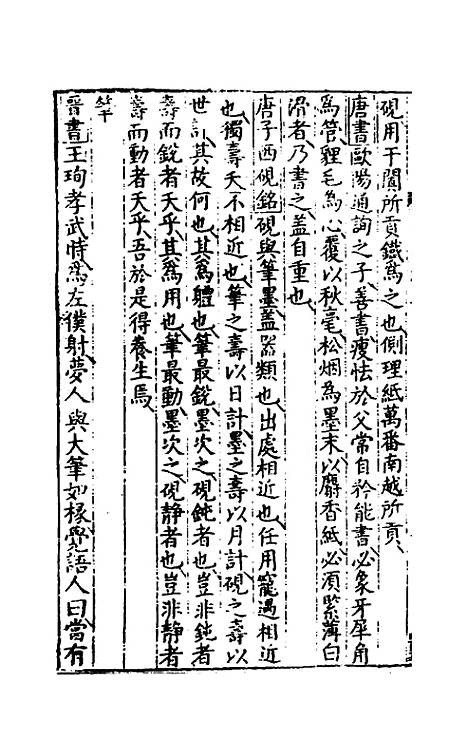 硯用于闐所貢鐵爲之也側理紙萬番南越所貢
唐書歐陽通詢之子善書瘦怯於父常自矜能書必象牙犀角
爲管貍毛爲心覆以秋毫松烟為墨末以麝香紙必須緊薄白
滑者乃書之蓋自重也
唐子西硯銘硯與筆墨蓋器類也出處相近也任用寵遇相近
也獨壽夭不相近也筆之壽以日計墨之壽以月計硯之壽以
世計其故何也其爲體也筆最銳墨次之硯鈍者也豈非鈍者
壽而銳者夭乎其爲用也筆最動墨次之硯靜者也豈非靜者
壽而動者夭乎吾於是得養生焉
筆
晉書王珣孝武時爲左僕射夢人與大筆如椽覺語人曰當有